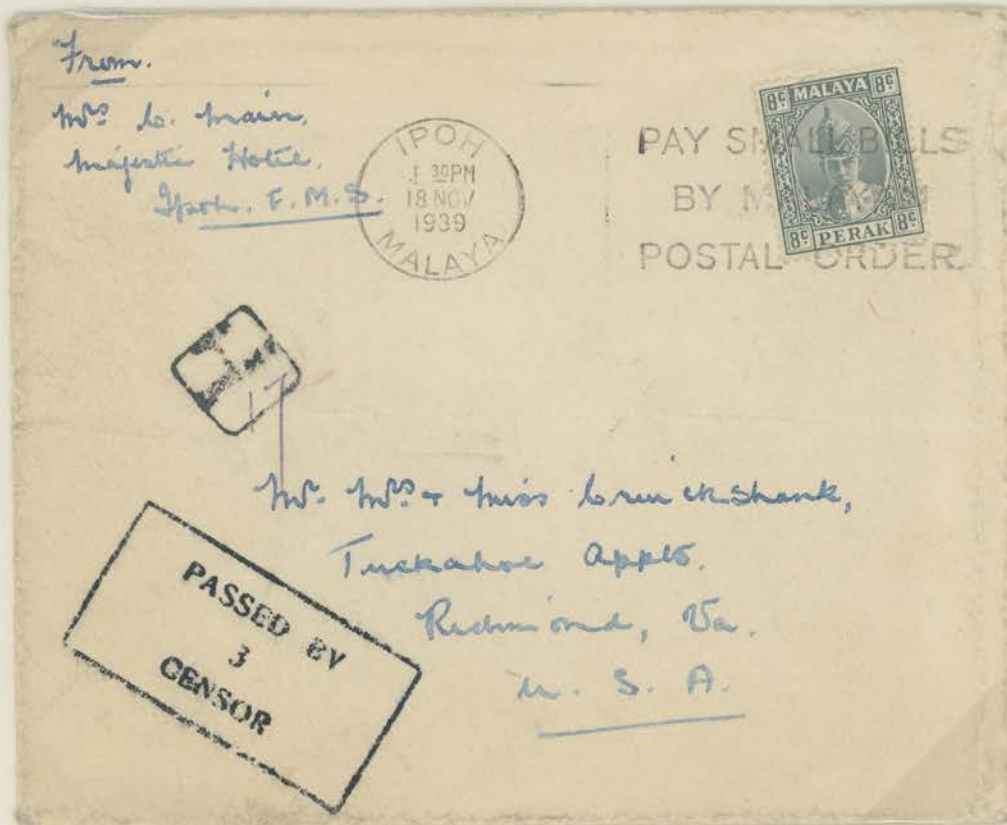 From.
Mrs C. Main.
Majestic Hotel.
Ipoh. F.M.S.
IPOH
1 30PM
18 NOV
1939
MALAYA
PAY SMALL BILLS
BY M
POSTAL ORDER.
8c MALAYA 8c
8c PERAK 8c
17
Mr. Mrs + Miss Cruickshank,
Tuckahoe Appts.
Richmond, Va.
U. S. A.
PASSED BY
3
CENSOR